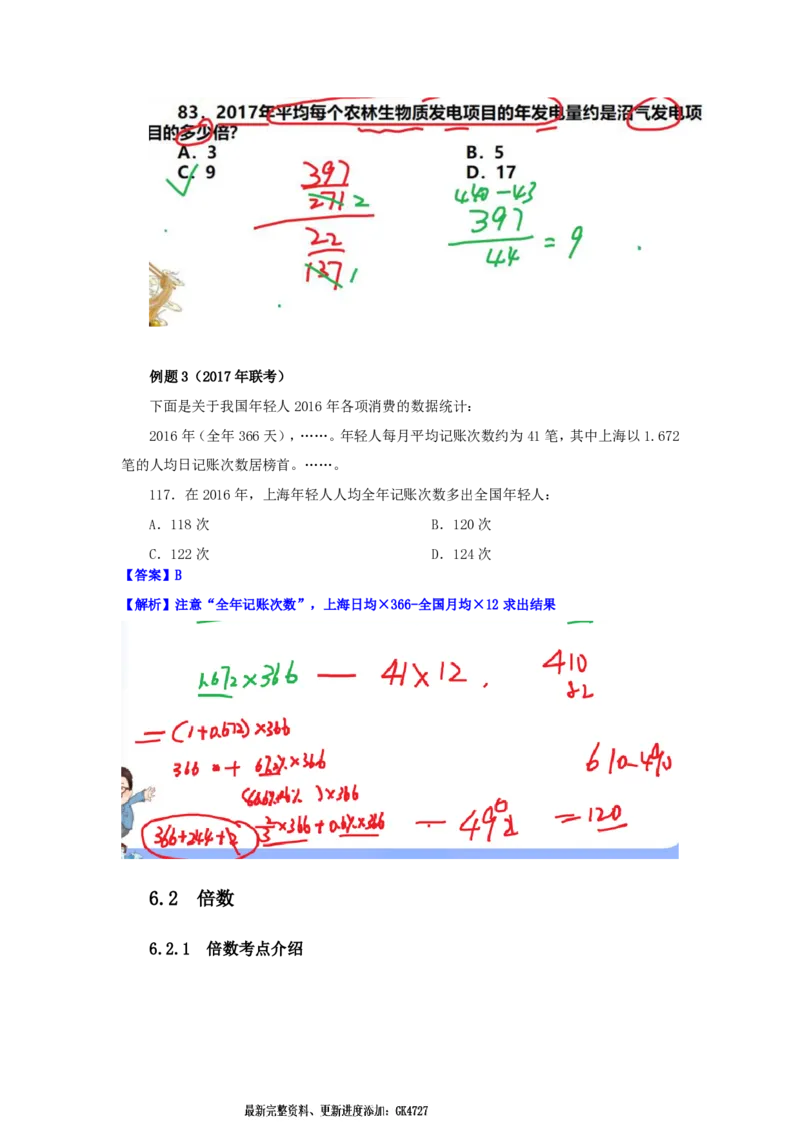 83. 2017年平均每个农林生物质发电项目的年发电量约是沼气发电项
目的多少倍?
A. 3
B. 5
C. 9
D. 17
397
271 2
22
137 1
440-43
397
44
= 9
例题 3（2017 年联考）
下面是关于我国年轻人 2016 年各项消费的数据统计：
2016 年（全年 366 天），……。年轻人每月平均记账次数约为 41 笔，其中上海以 1.672
笔的人均日记账次数居榜首。……。
117．在 2016 年，上海年轻人人均全年记账次数多出全国年轻人：
A．118 次
B．120 次
C．122 次
D．124 次
【答案】B
【解析】注意“全年记账次数”，上海日均×366-全国月均×12 求出结果
1.672×366 — 41×12
410
82
=(1+0.672)×366
366 + 67.2%×366
)×366
366+244+2
2/3×366+0.6%×366 — 492 =120
6.2 倍数
6.2.1 倍数考点介绍
最新完整资料、更新进度添加：GK4727